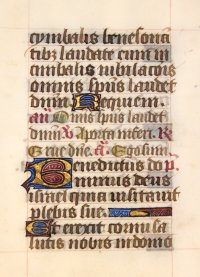 cymbalis benesonan
tib; laudate eum in
cimbalis iubilacions
omnis sp̄us laudet
dnm Requiem.
añ. Omis sp̄us laudet
dnm v̄ A porta inferi. R̄
Erue dñe. a. Ego sum.
Benedictus do
minus deus
israel quia visitauit
plebis sue
Et erexit cornu sa
lutis nobis in domo